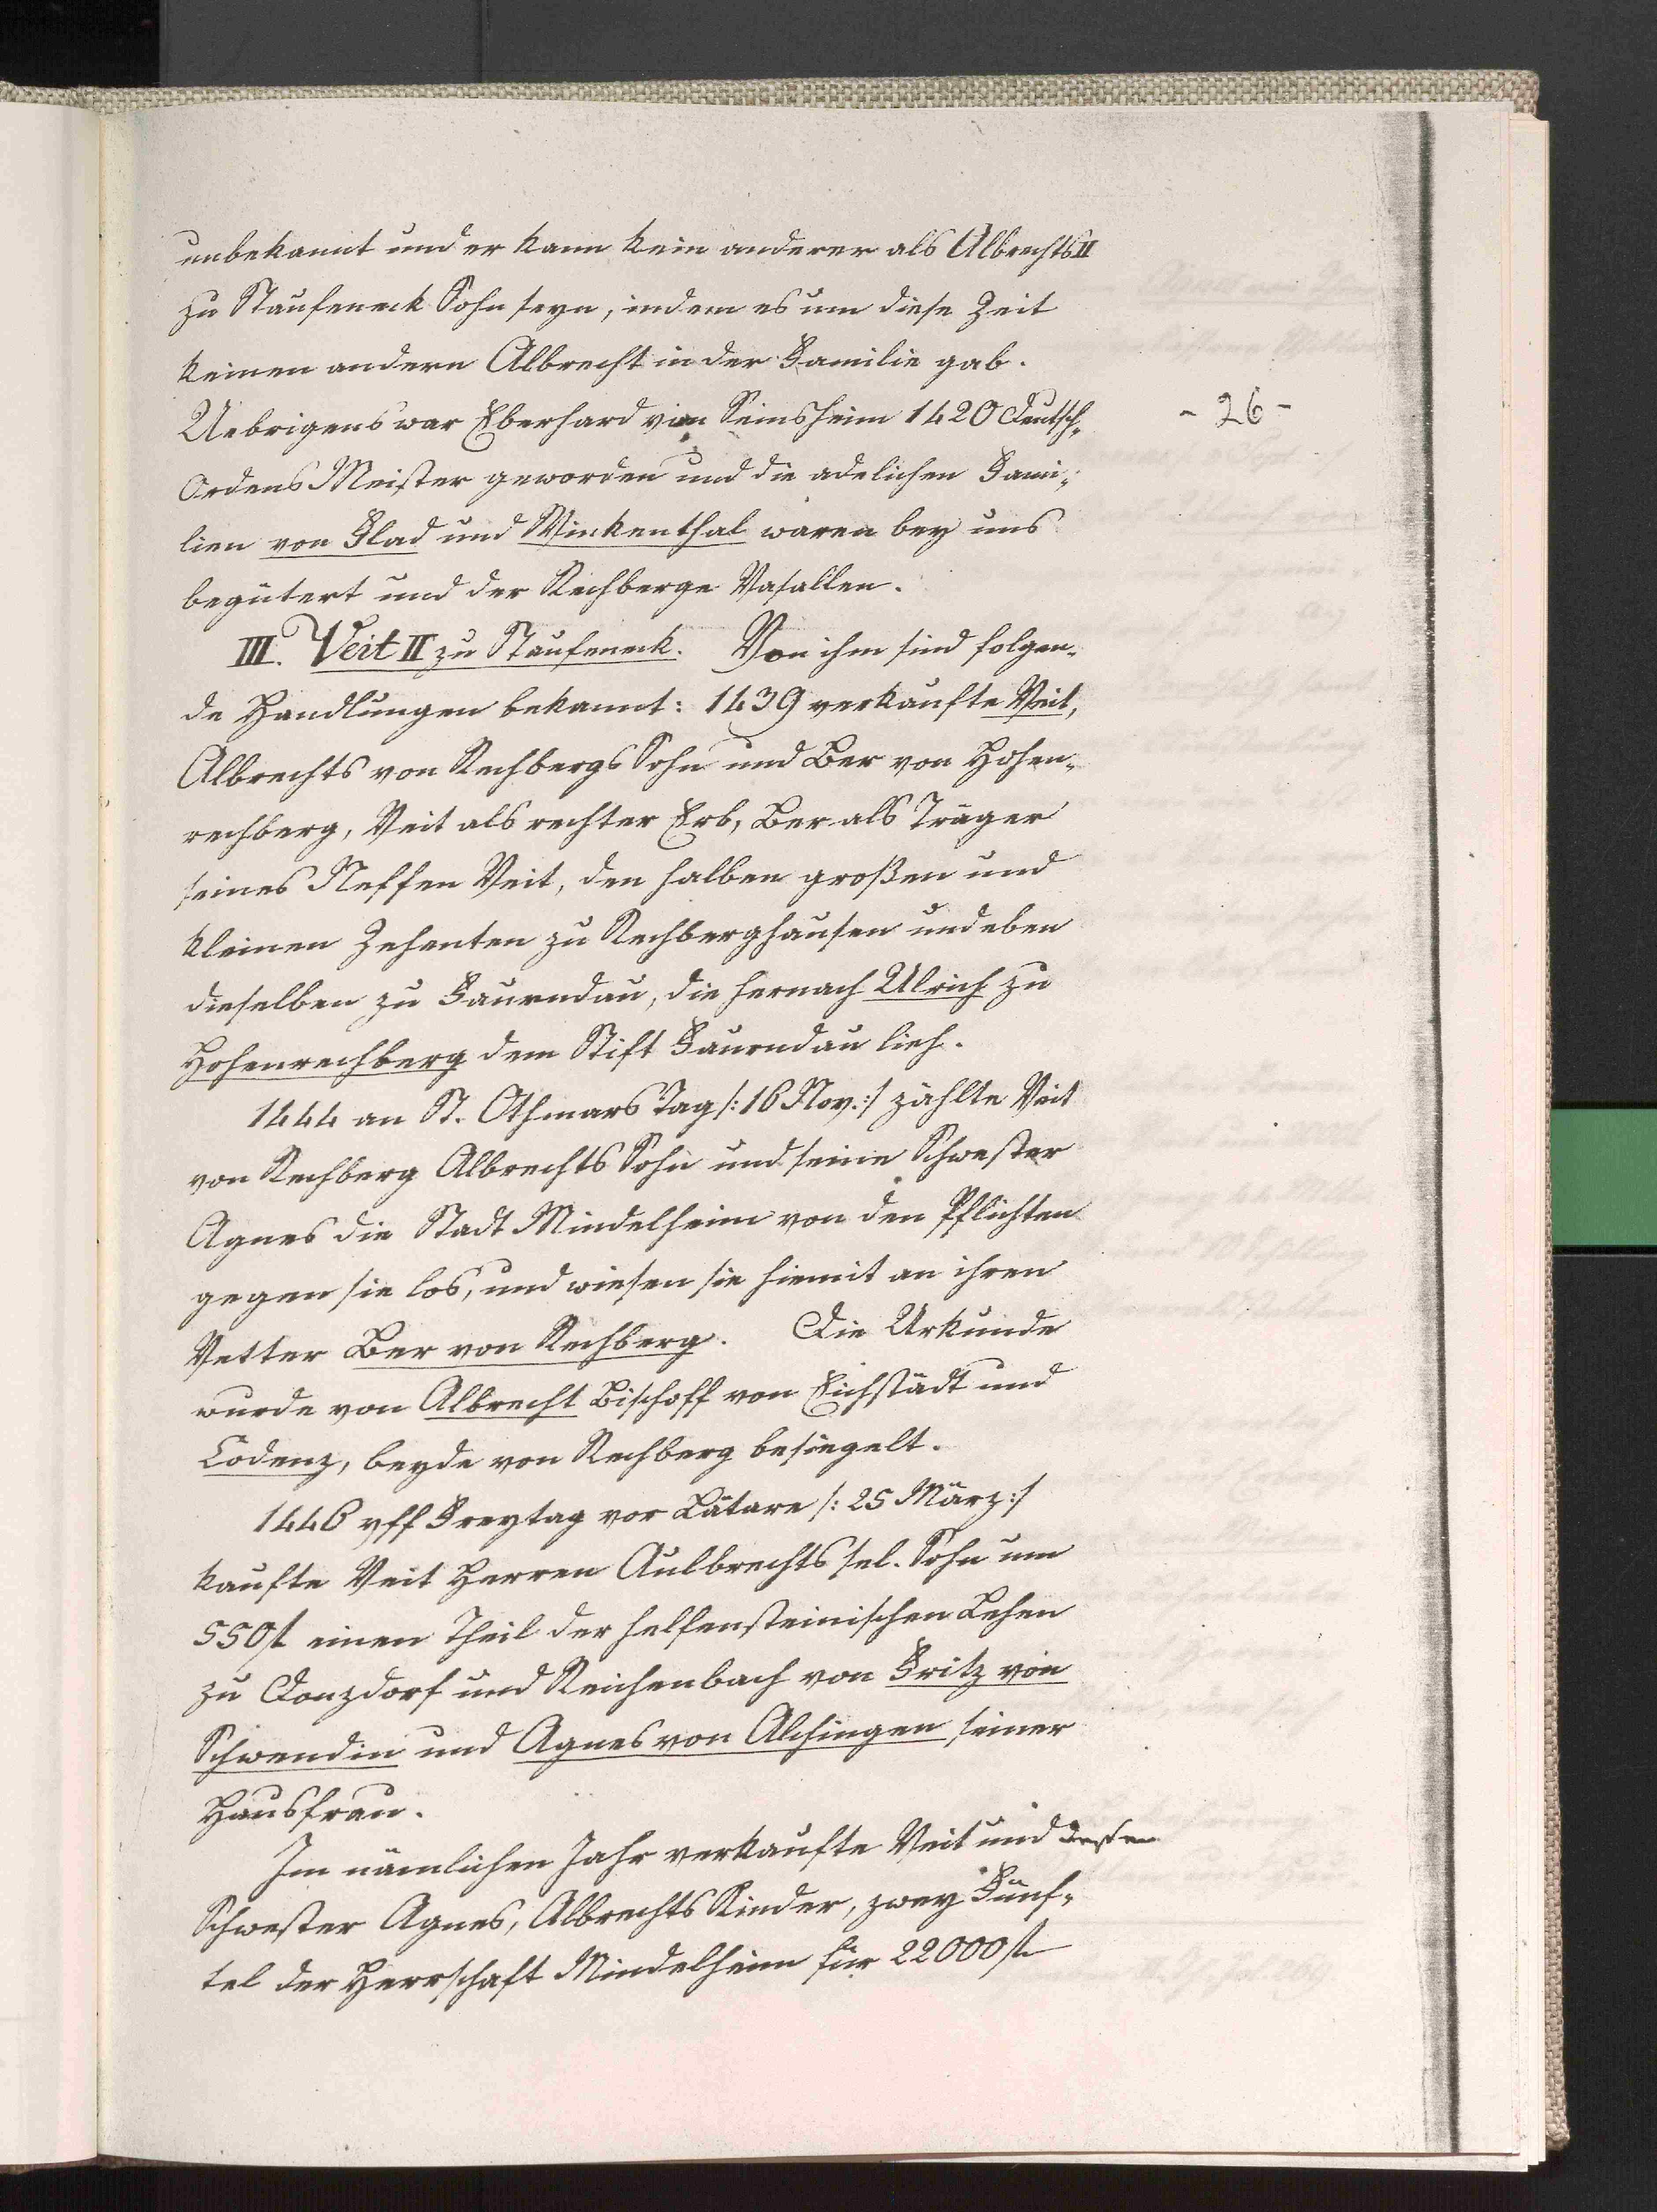 unbekannt und er kann kein anderer als Albrechts II
zu Staufeneck Sohn seyn, indem es um diese Zeit
keinen andern Albrecht in der Familie gab.
Uebrigens war Eberhard von Seinsheim 1420 Deutsch„
- 26 -
Ordens Meister geworden und die adelichen Fami„
lien von Flad und Winkenthal waren bey uns
begütert und der Rechberge Vasallen.
III. Veit II zu Staufeneck. Von ihm sind folgen„
de Handlungen bekannt: 1439 verkaufte Veit,
Albrechts von Rechbergs Sohn und Ber von Hohen„
rechberg, Veit als rechter Erb, Ber als Träger
seines Neffen Veit, den halben großen und
kleinen Zehenten zu Rechberghausen und eben
dieselben zu Faurndau, die hernach Ulrich zu
Hohenrechberg dem Stift Faurndau lieh.
1444 an St. Othmars Tag /: 16 Nov. :/ zählte Veit
von Rechberg Albrechts Sohn und seine Schwester
Agnes die Stadt Mindelheim von den Pflichten
gegen sie los, und wiesen sie hiemit an ihren
Vetter Ber von Rechberg. Die Urkunde
wurde von Albrecht Bischoff von Eichstädt und
Cödenz, beyde von Rechberg besiegelt.
1446 uff Freytag vor Lätare /: 25 März :/
kaufte Veit Herren Aulbrechts sel. Sohn um
550 fl einen Theil der helfensteinischen Lehen
zu Donzdorf und Reichenbach von Fritz von
Schwendin und Agnes von Ahsingen seiner
Hausfrau.
Im nämlichen Jahr verkaufte Veit und dessen
Schwester Agnes, Albrechts Kinder, zwey Fünf„
tel der Herrschaft Mindelheim für 22000 fl